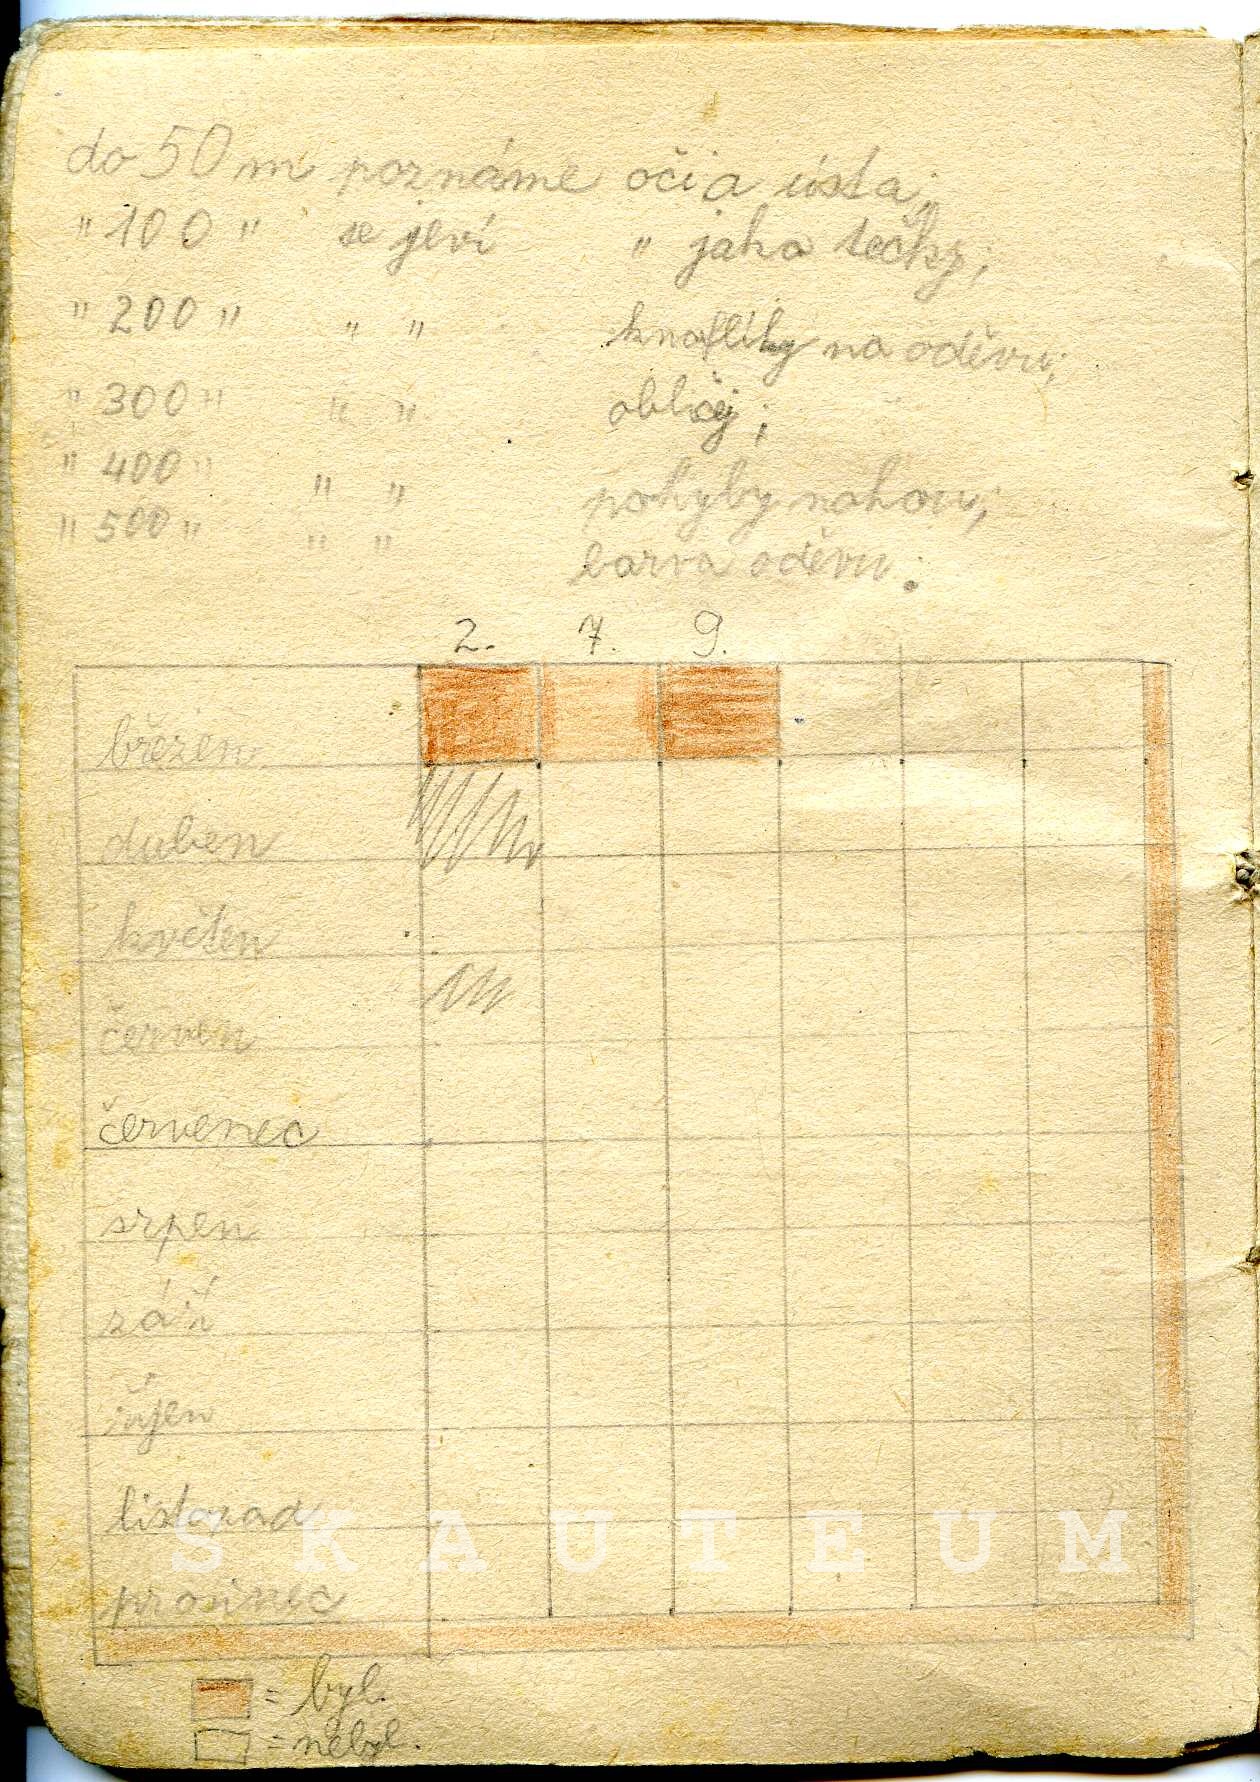 do 50 m poznáme oči a ústa;
" 100 " se jeví " jako tečky;
" 200 " " " knoflíky na oděvu;
" 300 " " " obličej;
" 400 " " " pohyby nohou;
" 500 " " " barva oděvu.
2. 7. 9.
březen
duben
květen
červen
červenec
srpen
září
říjen
listopad
SKAUTEUM
prosinec
= byl.
= nebyl.